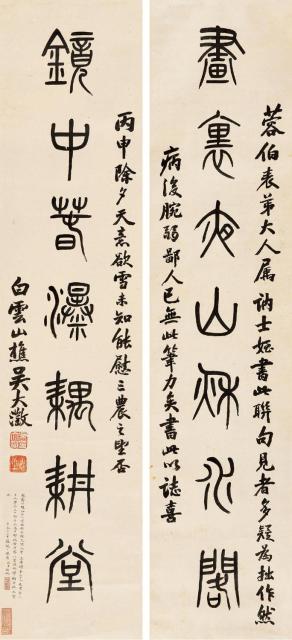 蓉伯表弟大人屬 訥士姪書此聯向見者多疑為拙作然
畫裏夜山秋水閣
病後腕弱鄙人已無此筆力矣書此以誌喜
丙申除夕天意欲雪未知能慰三農之望否
鏡中春瀑耦耕堂
白雲山樵吳大澂